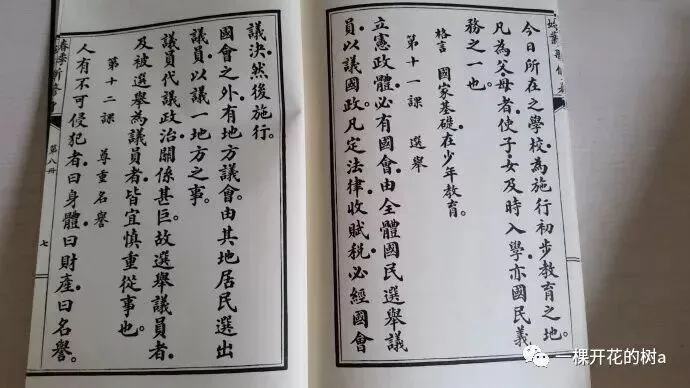 今日所在之學校。為施行初步教育之地。
凡為父母者。使子女及時入學。亦國民義
務之一也。
格言 國家基礎。在少年教育。
第十一課 選舉
立憲政體。必有國會。由全體國民選舉議
員。以議國政。凡定法律。收賦稅。必經國會
議決。然後施行。
國會之外。有地方議會。由其地居民選出
議員。以議一地方之事。
議員代議政治。關係甚巨。故選舉議員者。
及被選舉為議員者。皆宜慎重從事也。
第十二課 尊重名譽
人有不可侵犯者。曰身體。曰財產。曰名譽。
第八冊
七
一棵开花的树a